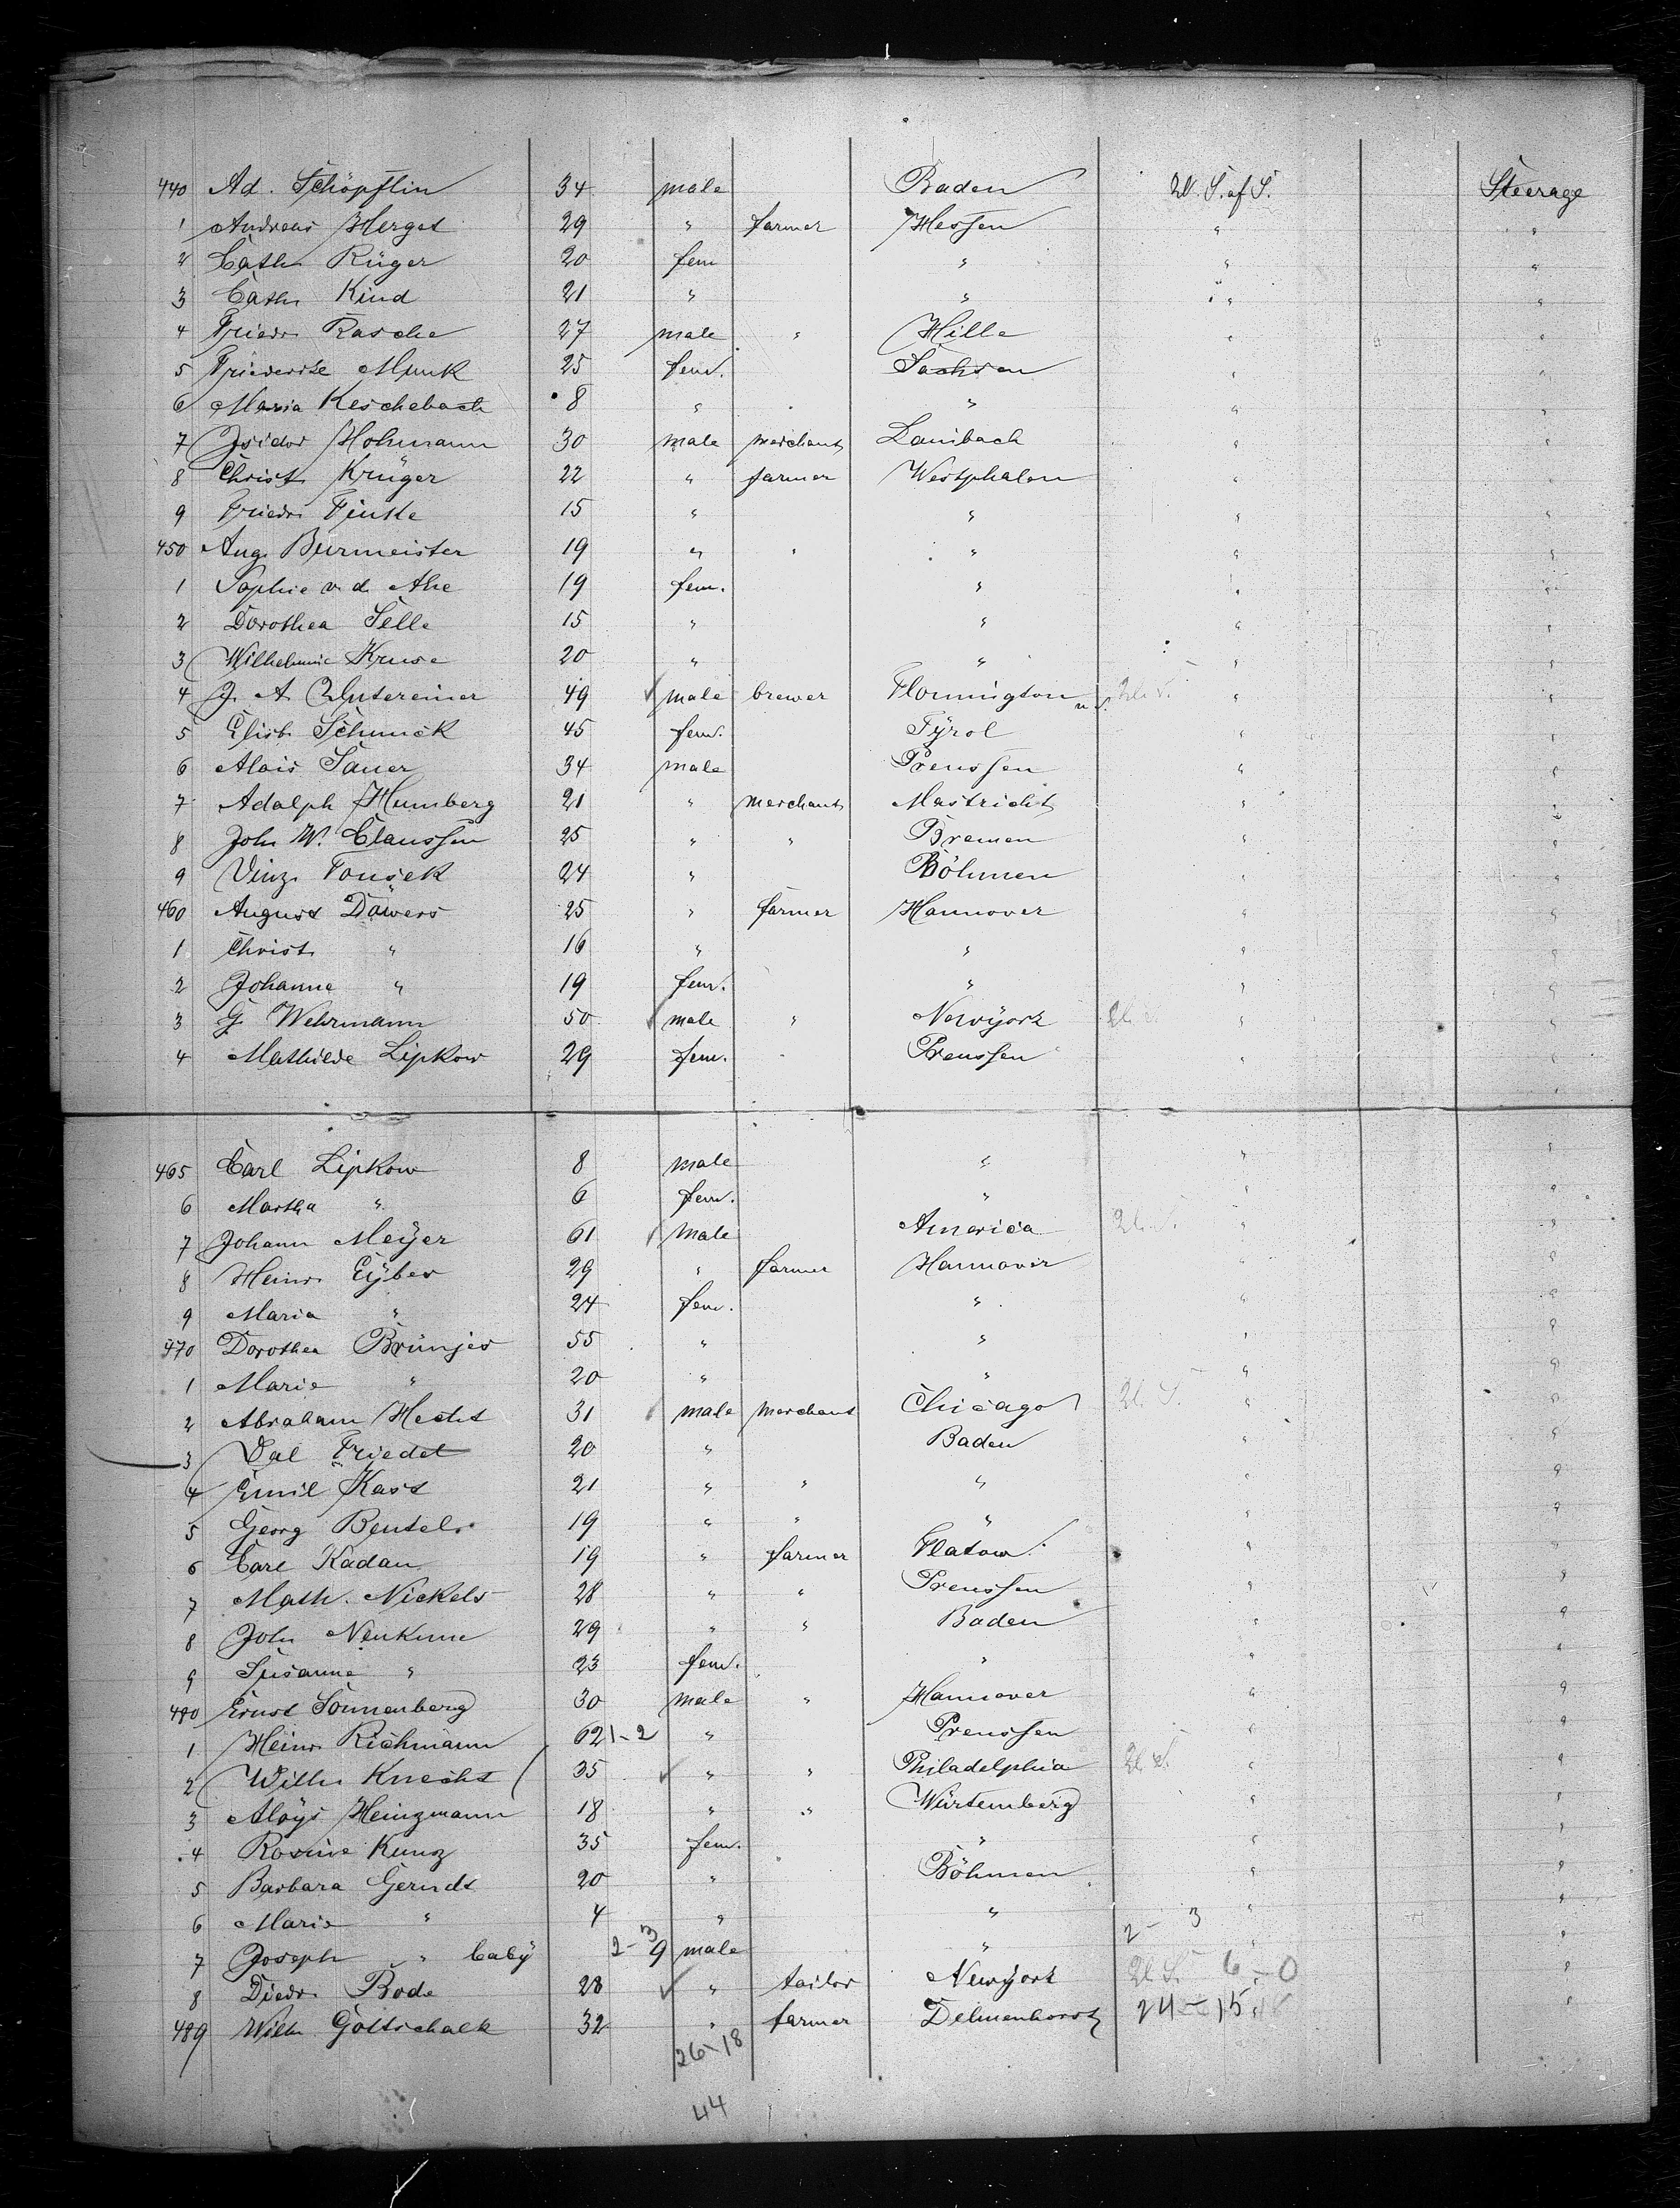 440 Ad. Schöpflin 34 male Baden U. S. of S. Steerage
1 Andreas Herget 29 " farmer Hessen " "
2 Cath. Rüger 20 fem " " "
3 Cath. Kind 21 " " " "
4 Friedr. Rasche 27 male " Hille " "
5 Friederike Munk 25 fem. Sachsen " "
6 Maria Keschebach 8 " " " "
7 Isidor Hohmann 30 male merchant " "
8 Christ. Krüger 22 " farmer Westphalen " "
9 Friedr. Finke 15 " " " "
450 Aug. Burmeister 19 " " " " "
1 Sophie v. d. Ahe 19 fem. " " "
2 Dorothea Selle 15 " " " "
3 Wilhelmine Kruse 20 " " " "
4 J. A. 49 male brewer " "
5 Elisb. Schmuck 45 fem. Tÿrol " "
6 Alois Sauer 34 male Preussen " "
7 Adalph Humberg 21 " merchant Mastricht " "
8 John W. Claussen 25 " " Bremen " "
9 Vinz. Tousek 24 " Böhmen " "
460 August Däwers 25 " farmer Hannover " "
1 Christ. " 16 " " " "
2 Johanne " 19 fem. " " "
3 G. Wehrmann 50 male " Newÿork U. S. " "
4 Mathilde Lipkow 29 fem. Preussen " "
465 Carl Lipkow 8 male " " "
6 Martha " 6 fem. " " "
7 Johann Meÿer 61 male America U. S. " "
8 Heinr. Eÿber 29 " farmer Hannover " "
9 Maria " 24 fem. " " "
470 Dorothea Brünjes 55 " " " "
1 Marie " 20 " " " "
2 Abraham Hecht 31 male merchant Chicago U. S. " "
3 Friedel 20 " Baden " "
4 Emil Kast 21 " " " " "
5 Georg Beutel 19 " " " " "
6 Carl Kadau 19 " farmer Flatow " "
7 Math. Nickels 28 " " Preussen " "
8 John Neukum 29 " " Baden " "
9 Susanne " 23 fem. " " "
480 Ernst Sonnenberg 30 male " Hannover " "
1 Heinr. Richmann 62 1-2 " Preussen " "
2 Wilh. Knecht 35 " " Philadelphia U. S. " "
3 Aloÿs Heinzmann 18 " " Würtemberg " "
4 Rosine Kunz 35 fem. " " "
5 Barbara Gerndt 20 " Böhmen " "
6 Marie " 4 " " " "
7 Joseph " babÿ 2-3 9 male " 2-3 " "
8 Diedr. Bode 28 " tailor Newÿork U. S. 6-0 "
489 Wilh. Gottschalk 32 " farmer Delmenhorst 24-15 "
26-18
44